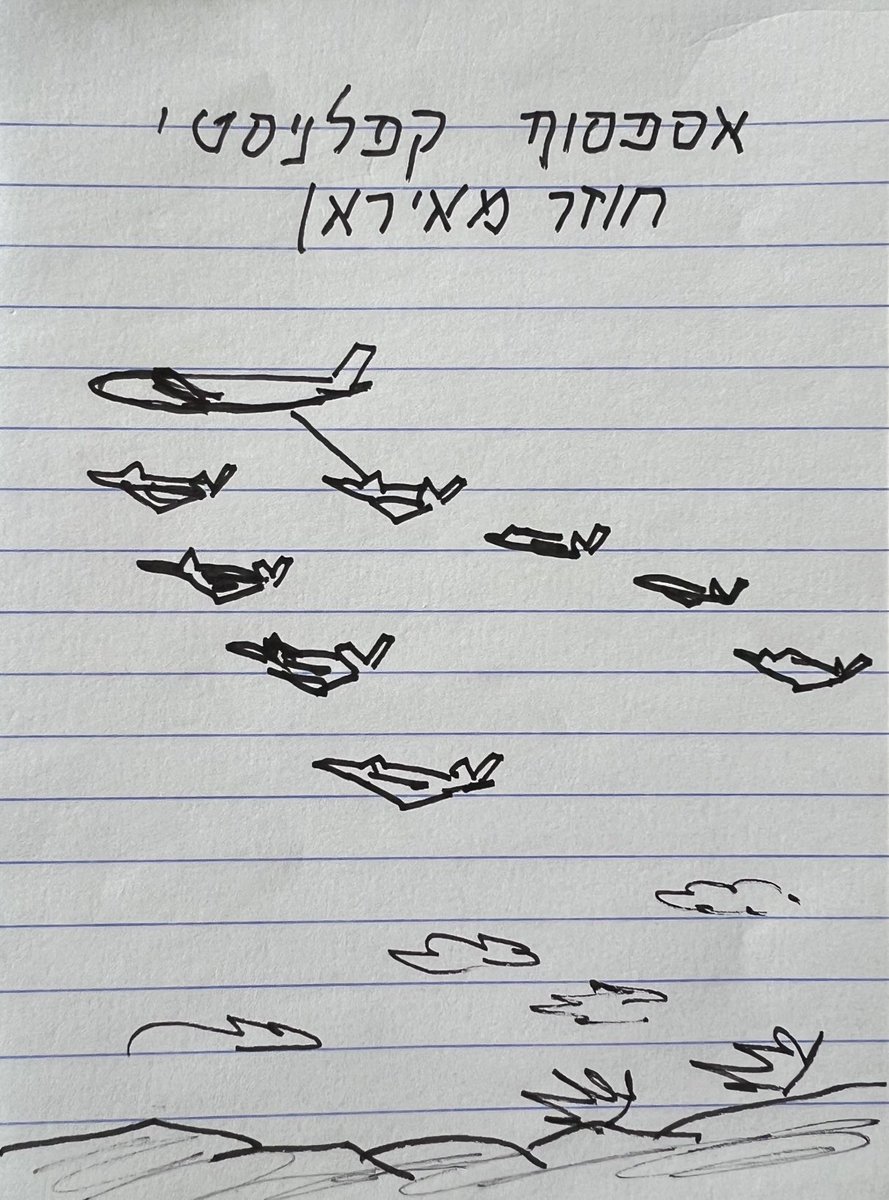 אספסוף קפלניסטי
חוזר מאיראן